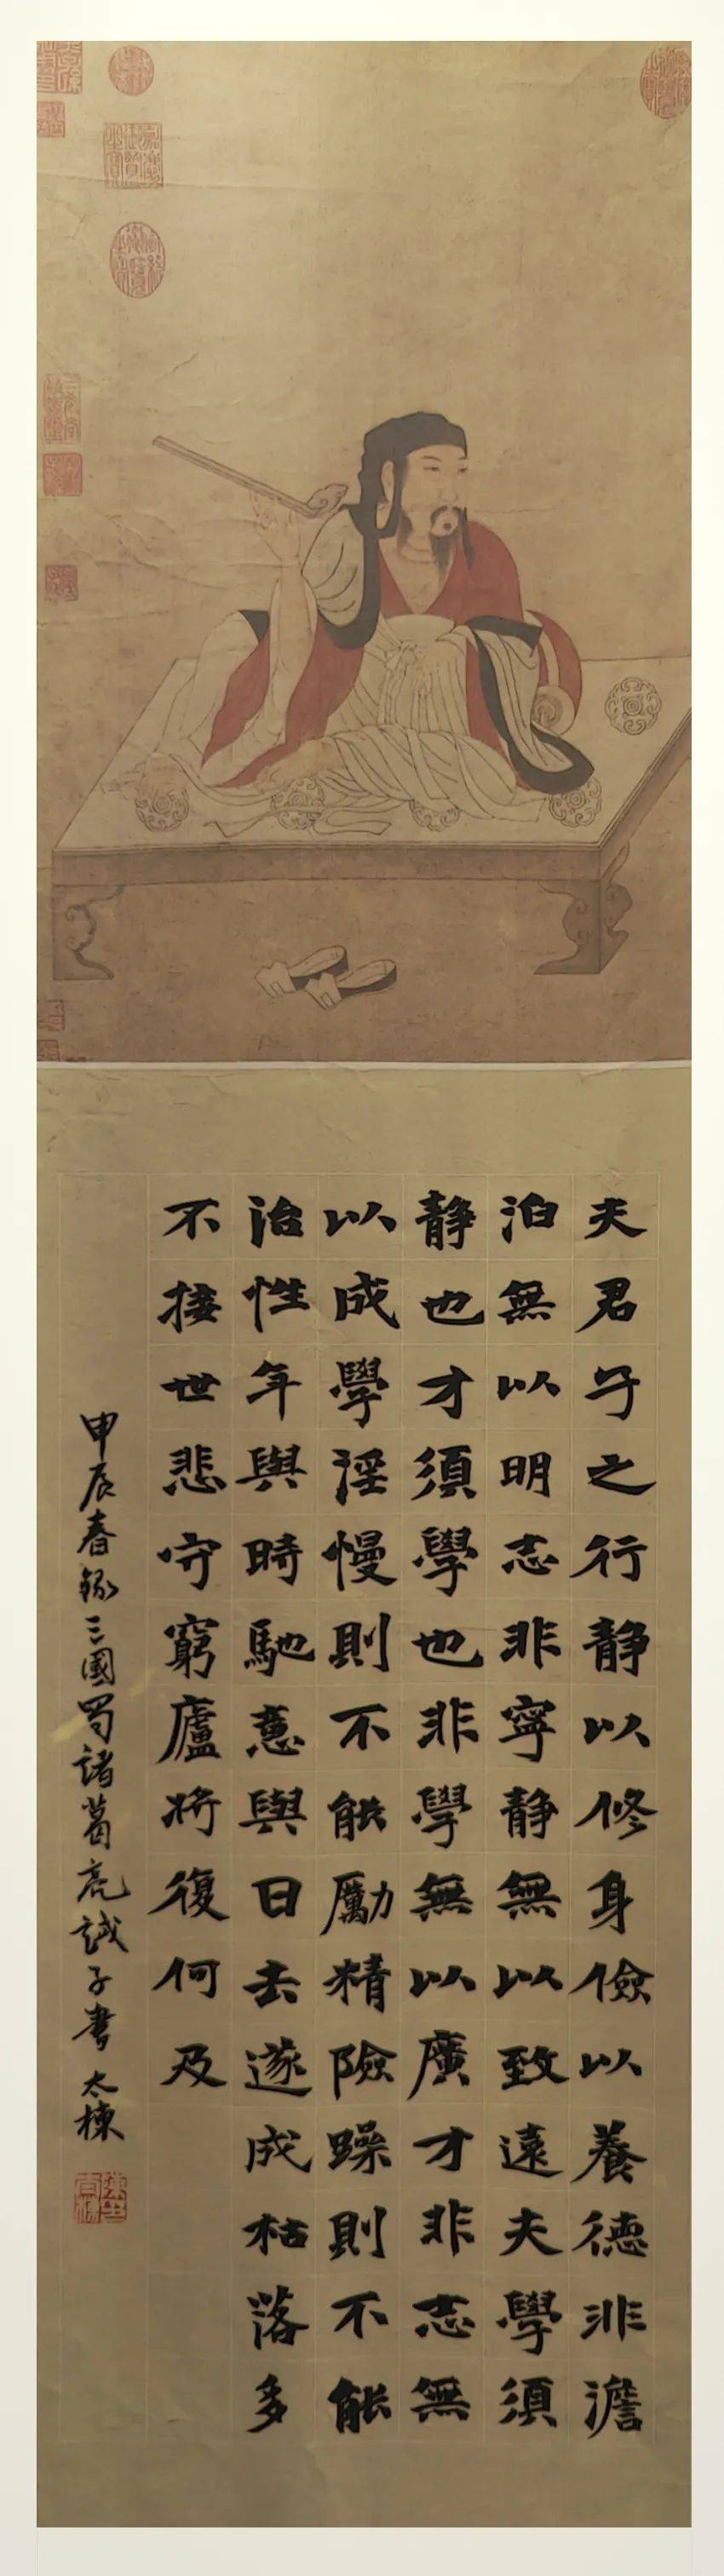 夫君子之行静以修身儉以養德非澹
泊無以明志非寧静無以致遠夫學須
静也才須學也非學無以廣才非志無
以成學淫慢則不能勵精險躁則不能
治性年與時馳意與日去遂成枯落多
不接世悲守窮廬將復何及
甲辰春錄三國蜀諸葛亮誡子書 太棟